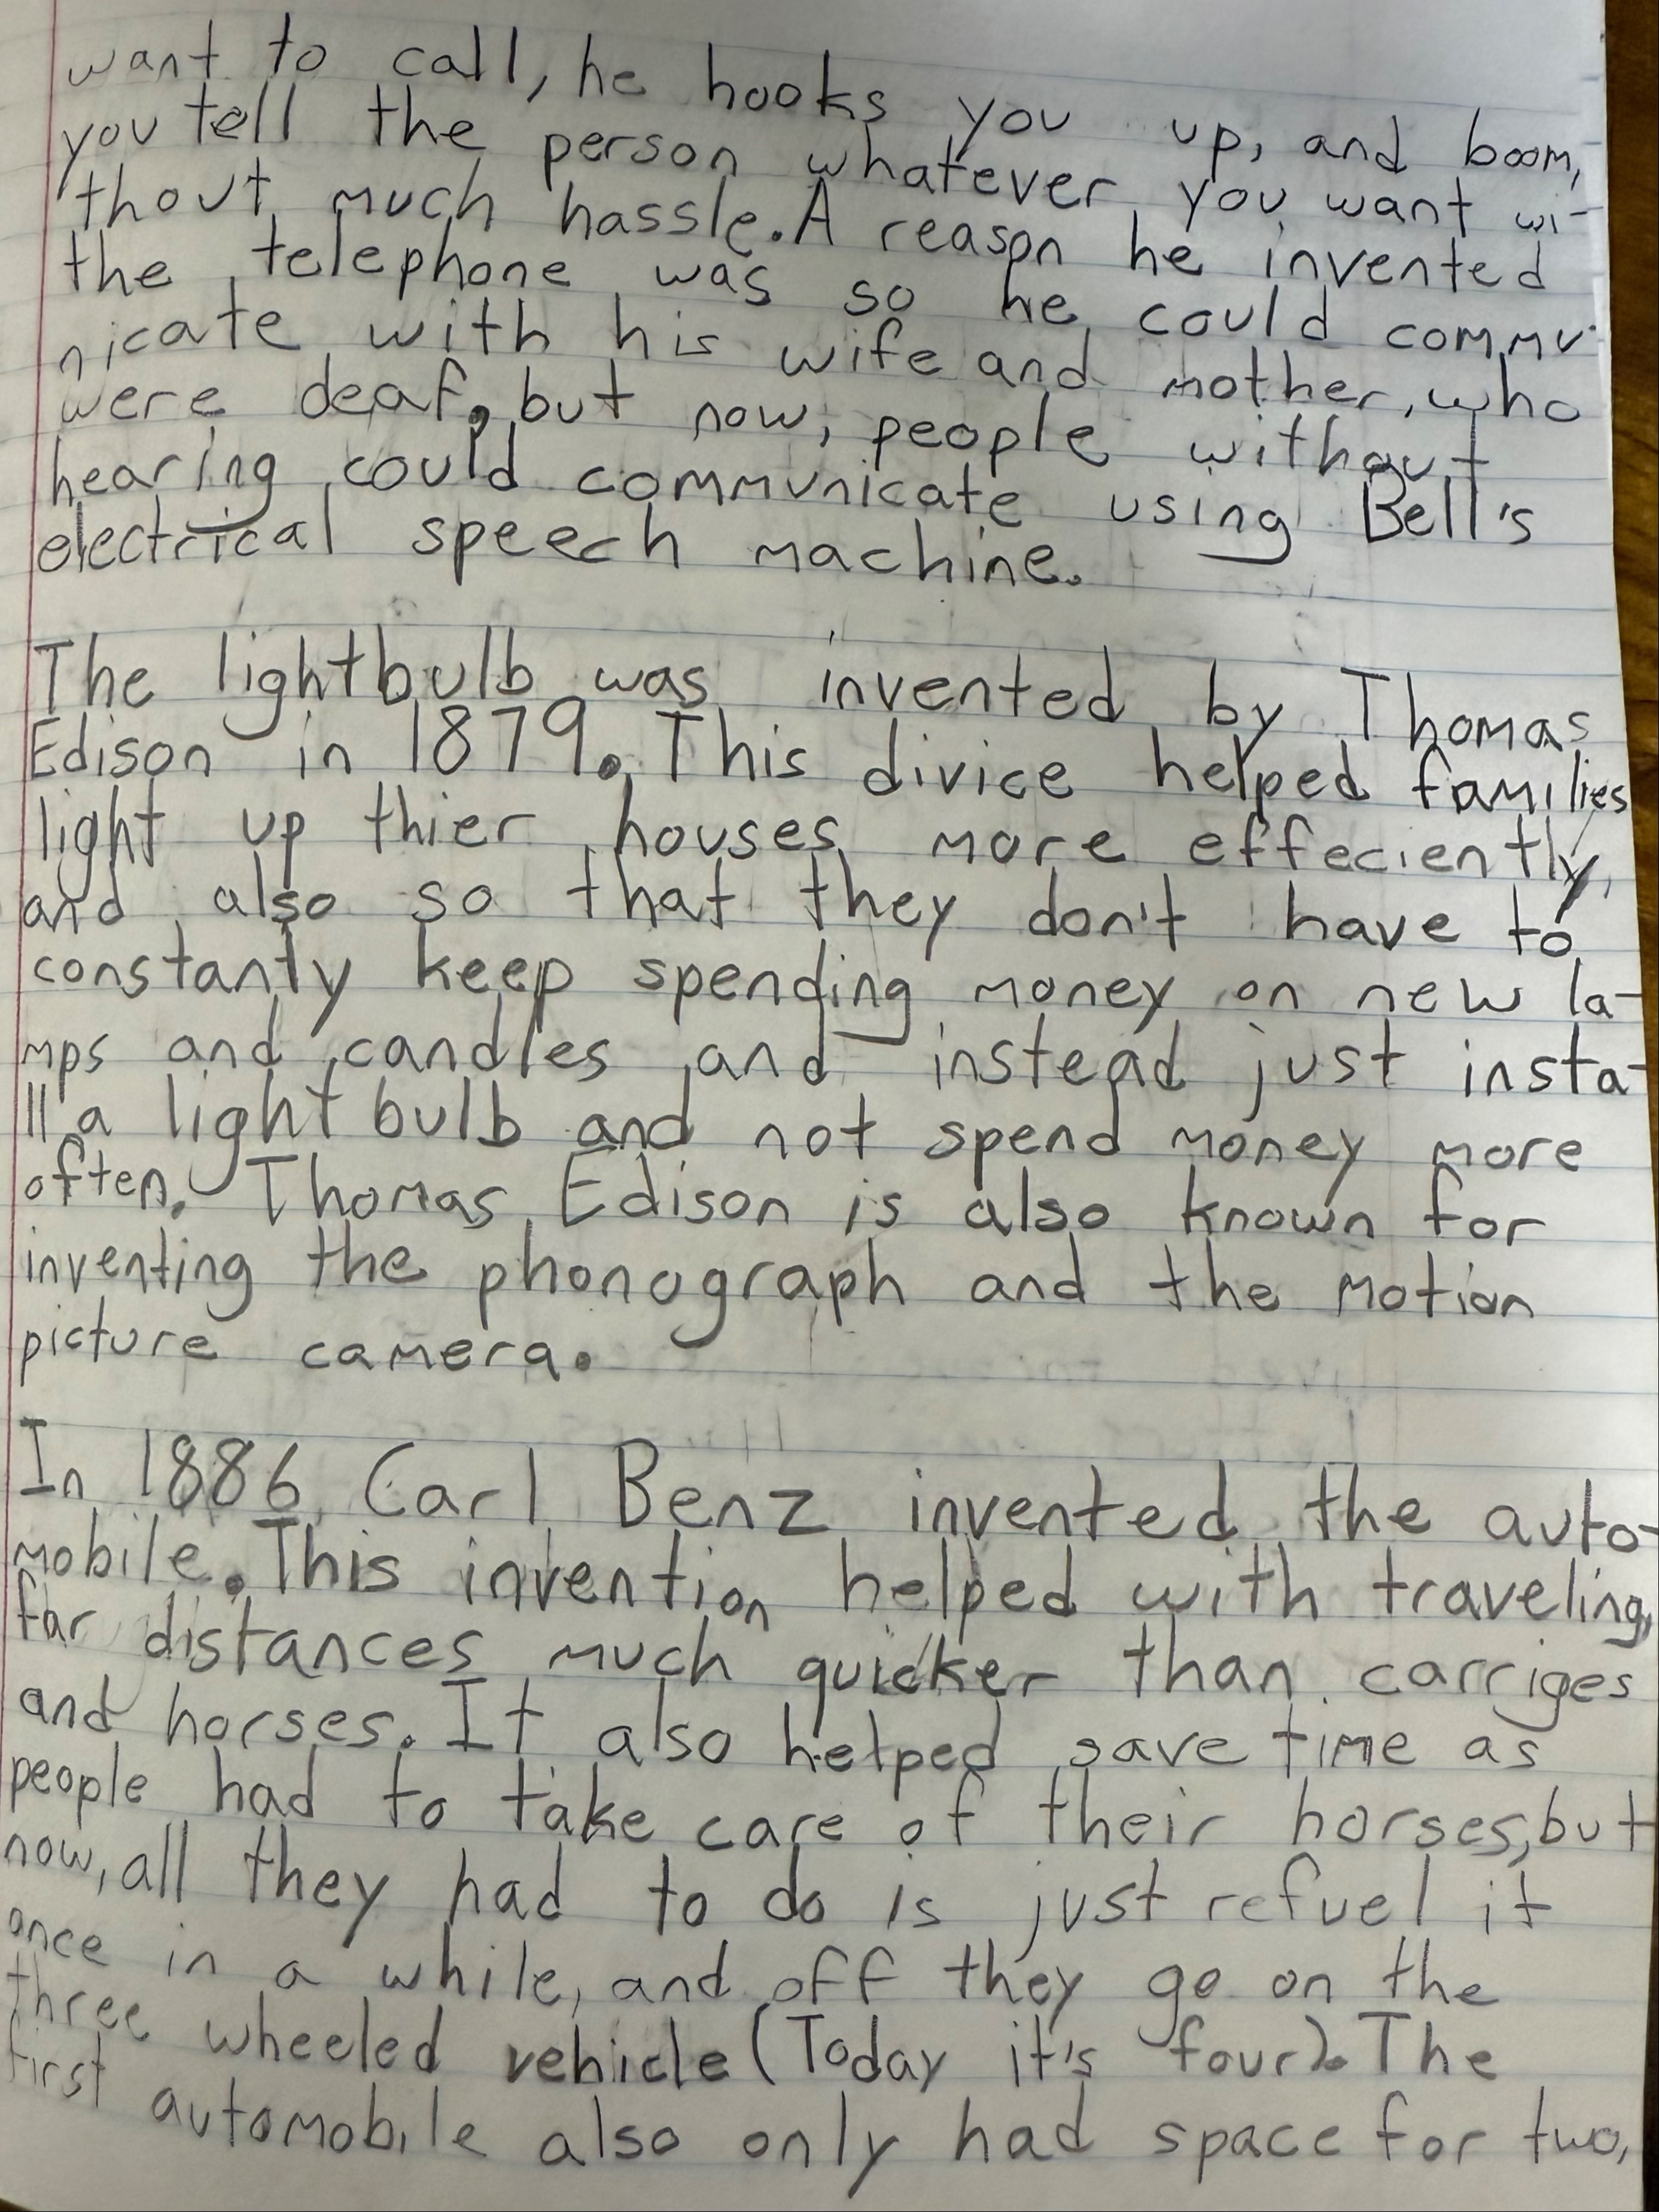 want to call, he hooks you up, and boom,
you tell the person whatever you want wi-
thout much hassle. A reason he invented
the telephone was so he could commu-
nicate with his wife and mother, who
were deaf, but now, people without
hearing could communicate using Bell's
electrical speech machine.
The lightbulb was invented by Thomas
Edison in 1879. This divice helped families
light up thier houses more effeciently,
and also so that they don't have to
constanty keep spending money on new la-
mps and candles and instead just insta-
ll a light bulb and not spend money more
often. Thomas Edison is also known for
inventing the phonograph and the motion
picture camera.
In 1886 Carl Benz invented the auto-
mobile. This invention helped with traveling
far distances much quicker than carriges
and horses. It also helped save time as
people had to take care of their horses, but
now, all they had to do is just refuel it
once in a while, and off they go on the
three wheeled vehicle (Today it's four). The
first automobile also only had space for two,